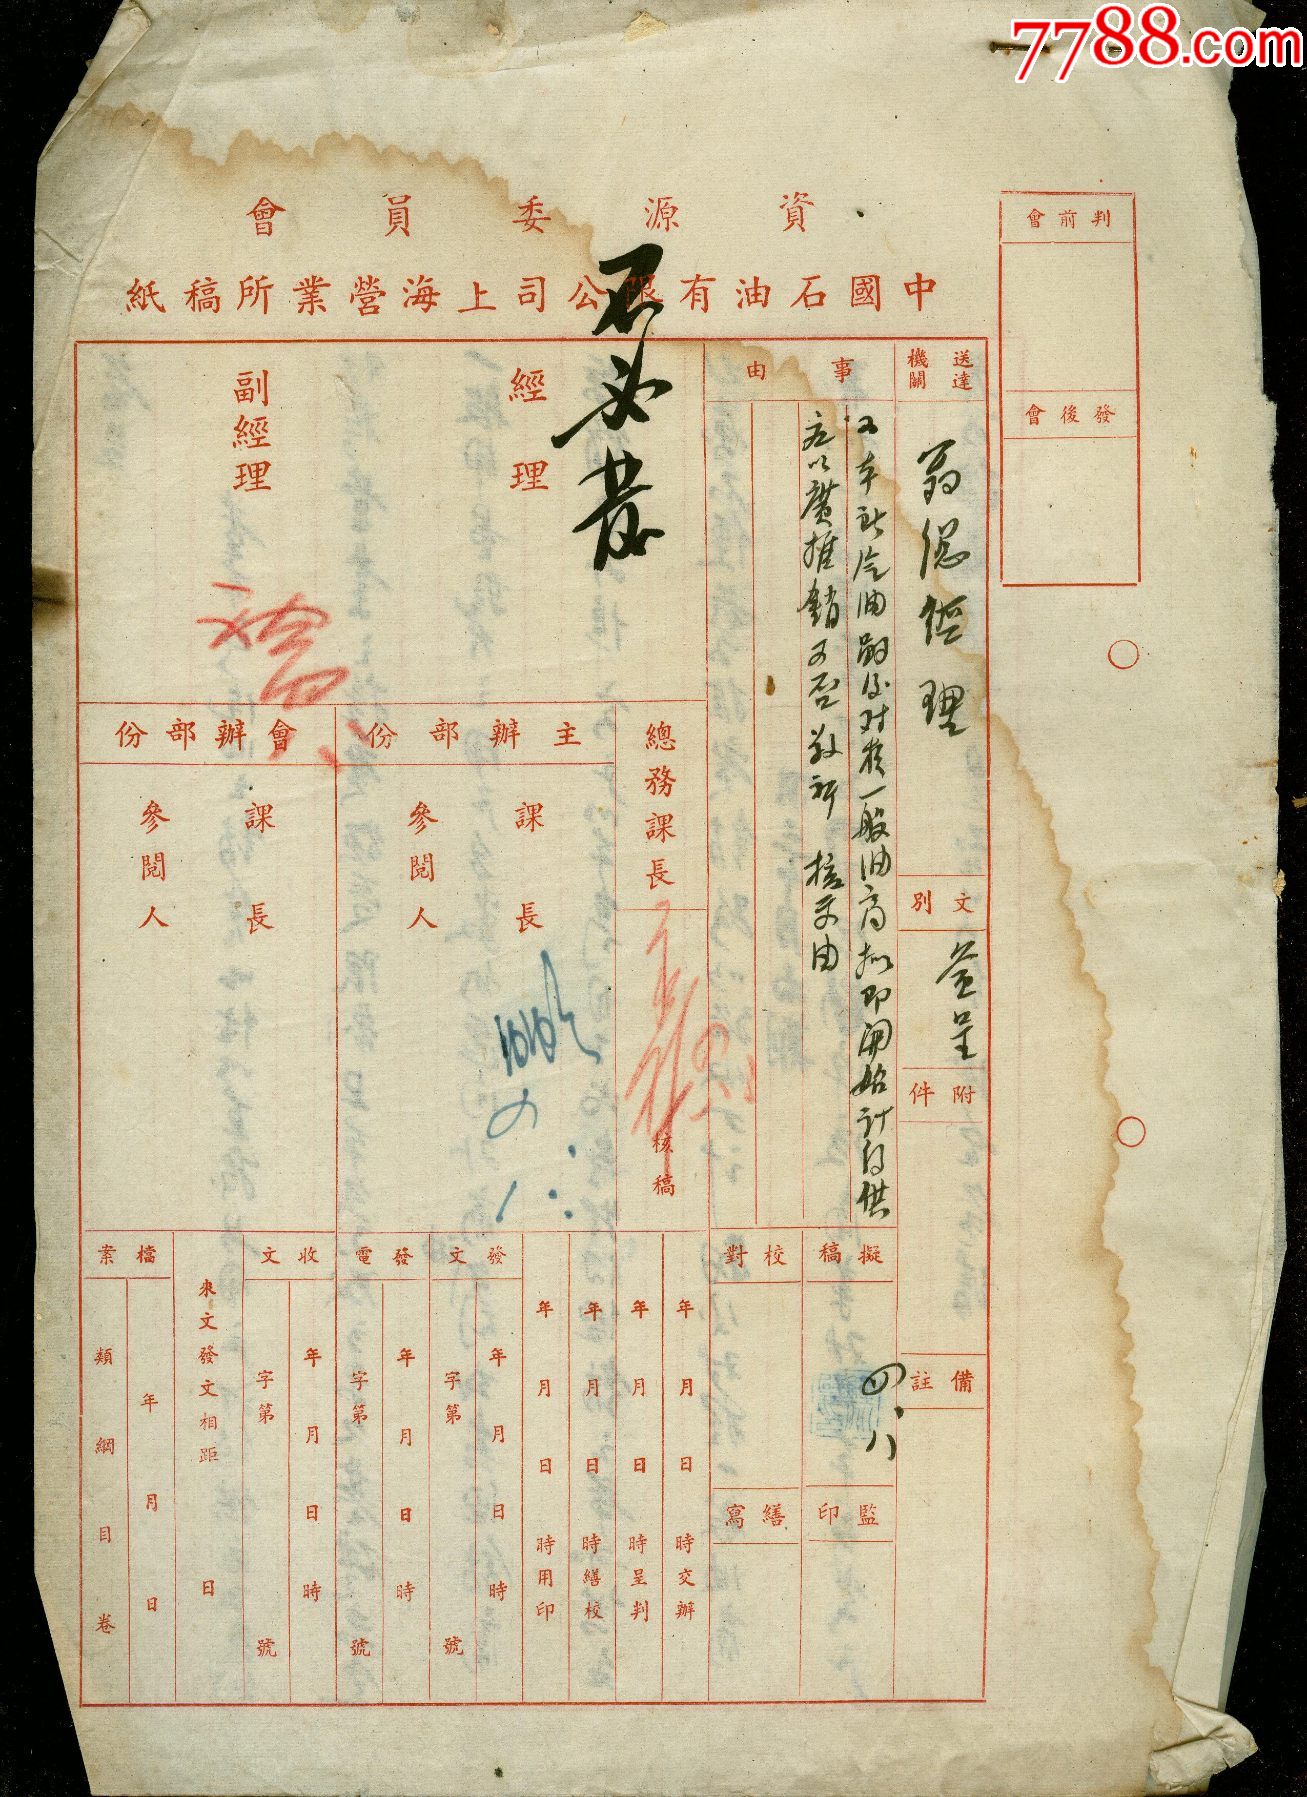 7788.com
資源委員會
中國石油有限公司上海營業所稿紙
不必發
判前會
發後會
送達機關
翁總經理
文別
簽呈
附件
備註
事由
為以廣推銷可否敬祈 核示由
擬稿
四、八
監印
校對
繕寫
經理
副經理
總務課長
核稿
主辦部份
課長
參閱人
會辦部份
課長
參閱人
年月日時交辦
年月日時呈判
年月日時繕校
年月日時用印
發文
年月日時
字第號
發電
年月日時
字第號
收文
年月日時
字第號
來文發文相距日
檔案
年月日
類綱目卷